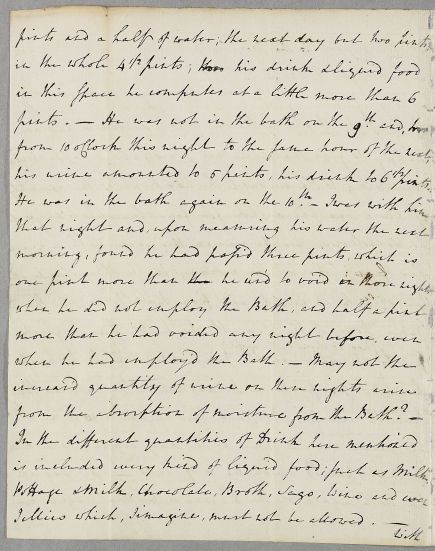 pints and a half of water; the next day but two pints
in the whole 4½ pints; his drink & liquid food
in this space he computes at a little more than 6
pints. — He was not in the bath on the 9th and,
from 10 oClock this night to the same hour of the next
his urine amounted to 5 pints, his drink to 6½ pints.
He was in the bath again on the 10th — I was with him
that night and, upon measuring his water the next
morning, found he had pass'd three pints, which is
one pint more than he us'd to void in those nights
when he did not employ the Bath, and half a pint
more than he had voided any night before, even
when he had employ'd the Bath. — May not the
increas'd quantity of urine on these nights arise
from the absorption of moisture from the Bath? —
In the different quantities of Drink here mentioned
is included every kind of liquid food; such as Milk,
Pottage & Milk, Chocolate, Broth, Sago, Wine and even
Jellies which, I imagine, must not be allowed. —
With